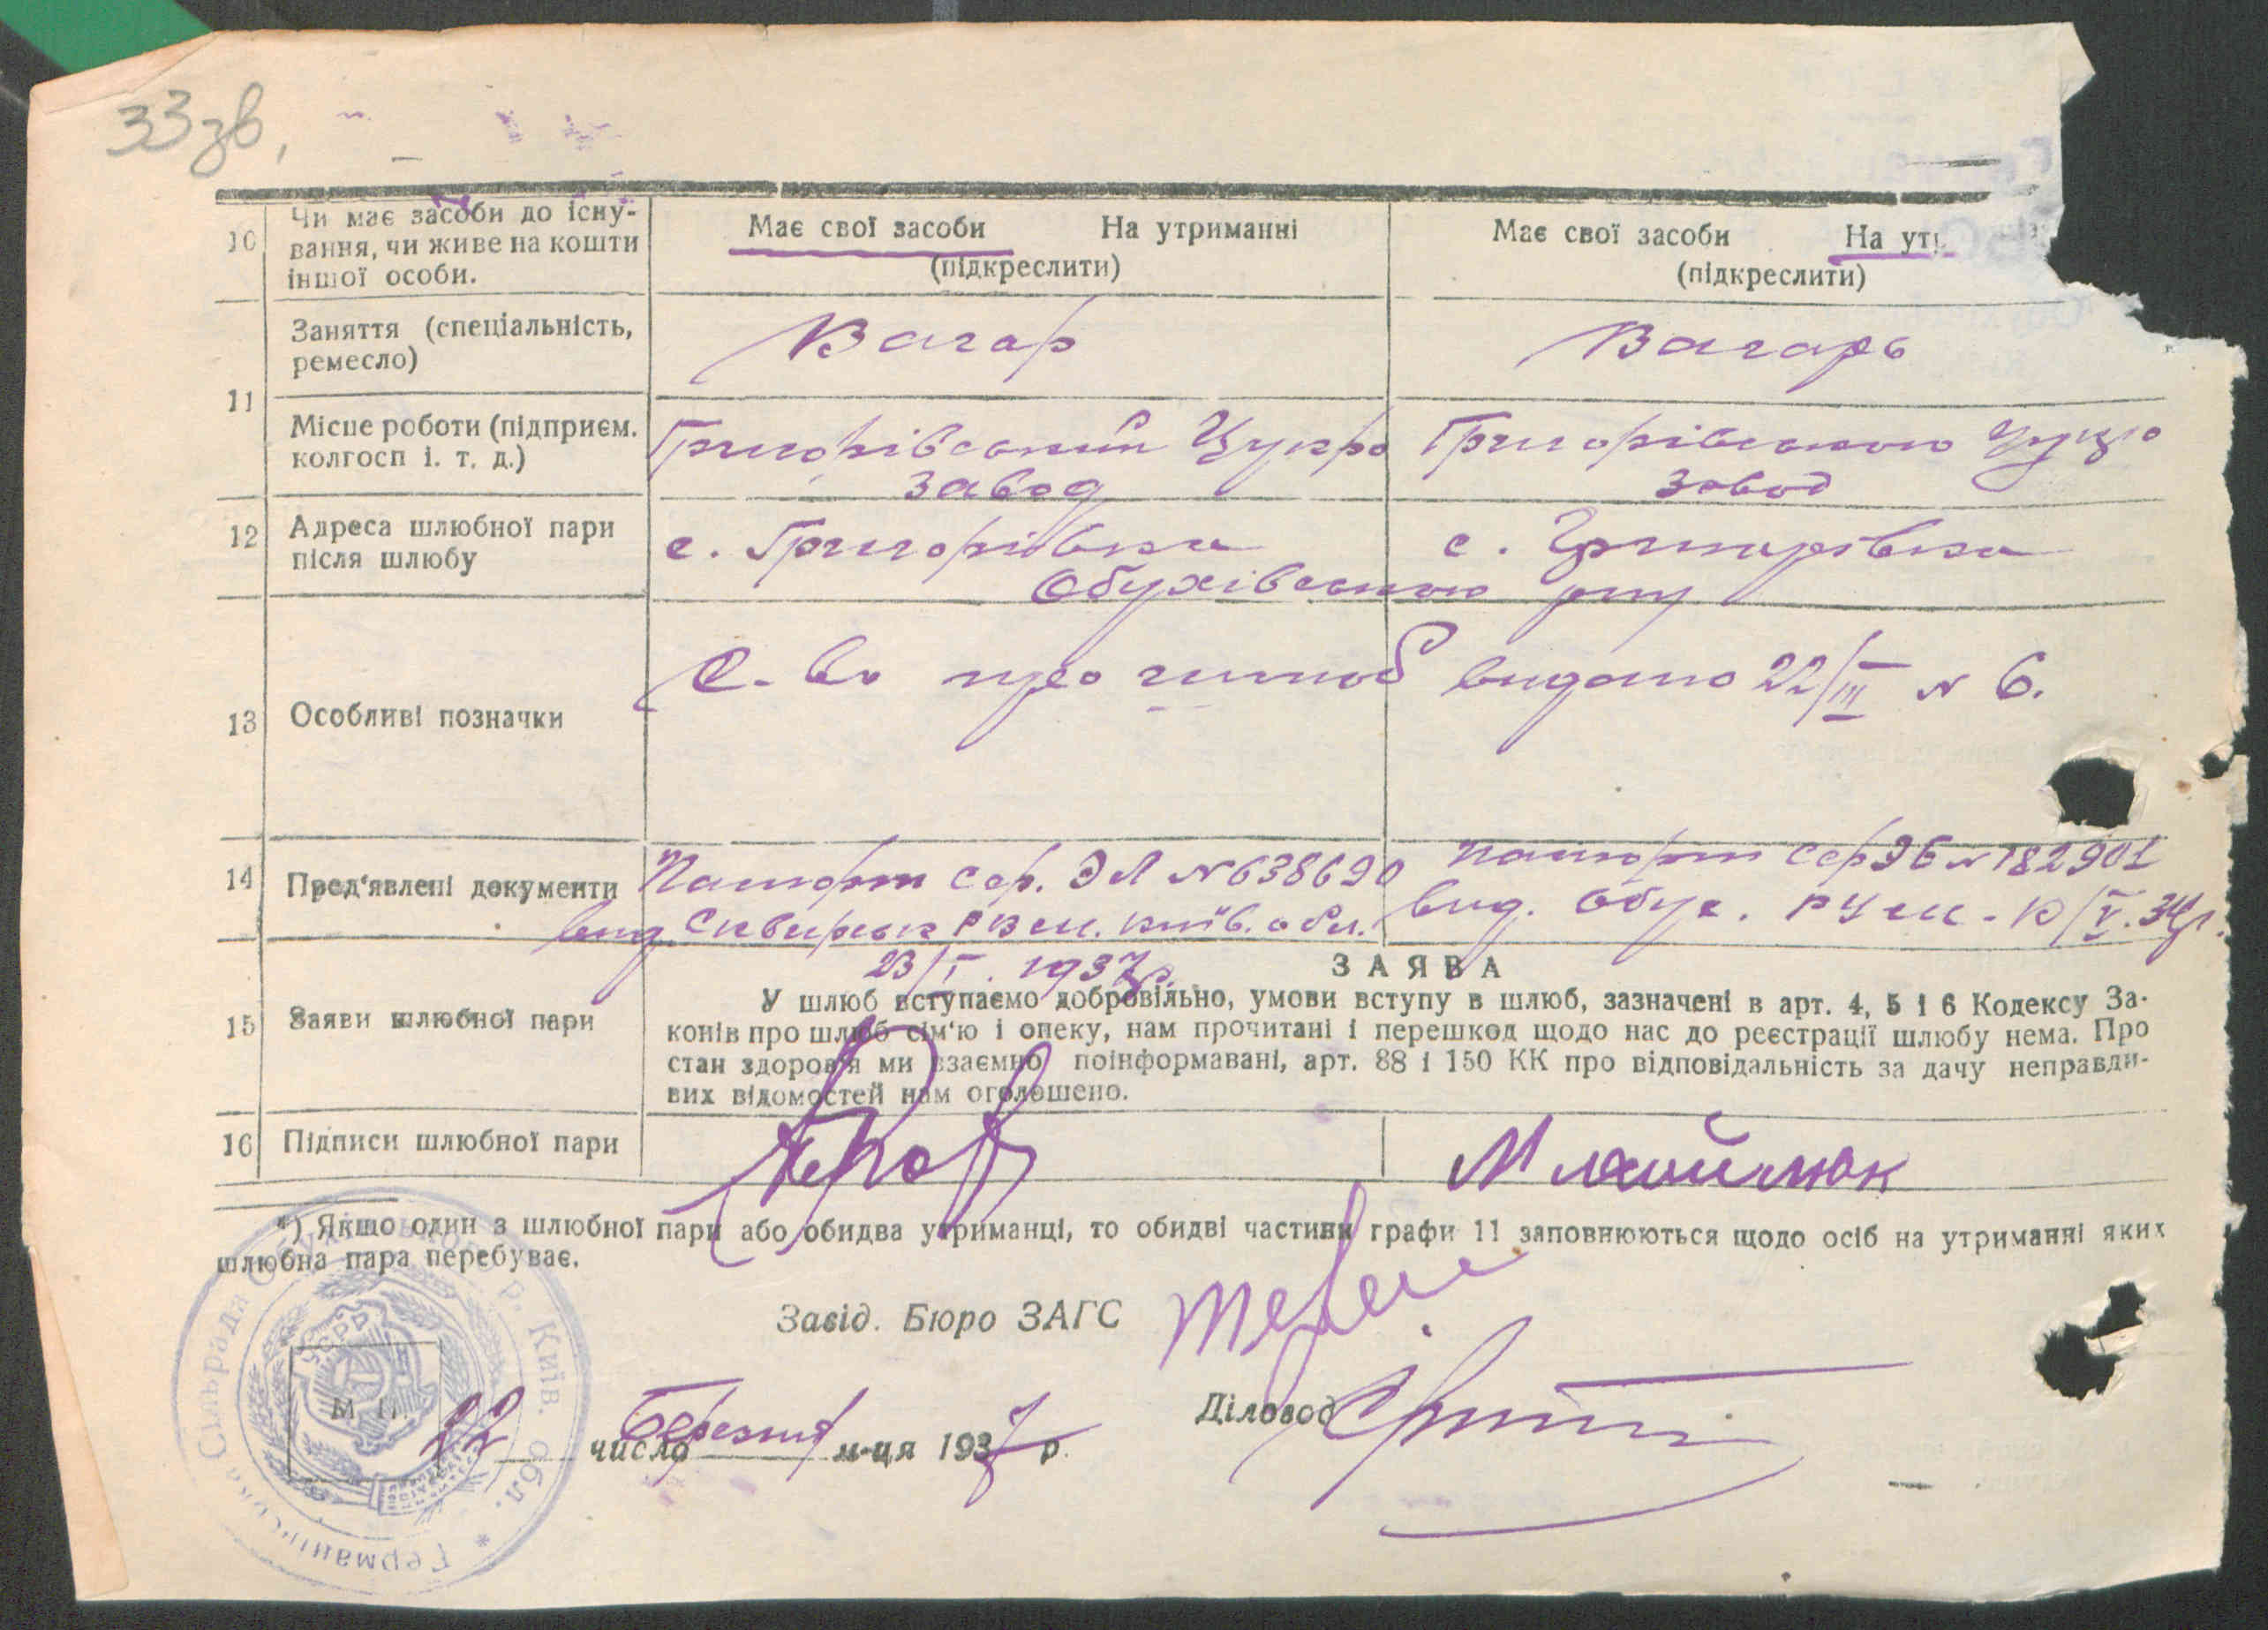 33 зв,
10 Чи має засоби до існу-
вання, чи живе на кошти
іншої особи.
Має свої засоби На утриманні
(підкреслити)
Має свої засоби На ут
(підкреслити)
11 Заняття (спеціальність,
ремесло)
Вагар
Вагарь
Місце роботи (підприєм.
колгосп і. т. д.)
Григорівський Цукро
завод
Григорівського
завод
12 Адреса шлюбної пари
після шлюбу
с. Григорівка с. Григорівка
Обухівського р-ну
13 Особливі позначки
С-во про шлюб видано 22/III N 6.
14 Пред'явлені документи
Пашпорт сер. ЭЛ N 638690
вид. Сквирськ РВ м. Київ. обл.
23/I. 1937 р.
Пашпорт сер ЭБ N 182901
вид. Обух. РУ м -
15 Заяви шлюбної пари
ЗАЯВА
У шлюб вступаємо добровільно, умови вступу в шлюб, зазначені в арт. 4, 5 і 6 Кодексу За-
конів про шлюб сім'ю і опеку, нам прочитані і перешкод щодо нас до реєстрації шлюбу нема. Про
стан здоров'я ми взаємно поінформавані, арт. 88 і 150 КК про відповідальність за дачу неправди-
вих відомостей нам оголошено.
16 Підписи шлюбної пари
*) Якщо один з шлюбної пари або обидва утриманці, то обидві частини графи 11 заповнюються щодо осіб на утриманні яких
шлюбна пара перебуває.
Завід. Бюро ЗАГС
Діловод
М. П.
22 число Березня м-ця 1937 р.
Германівська Сільрада р. Київ. обл.
УСРР